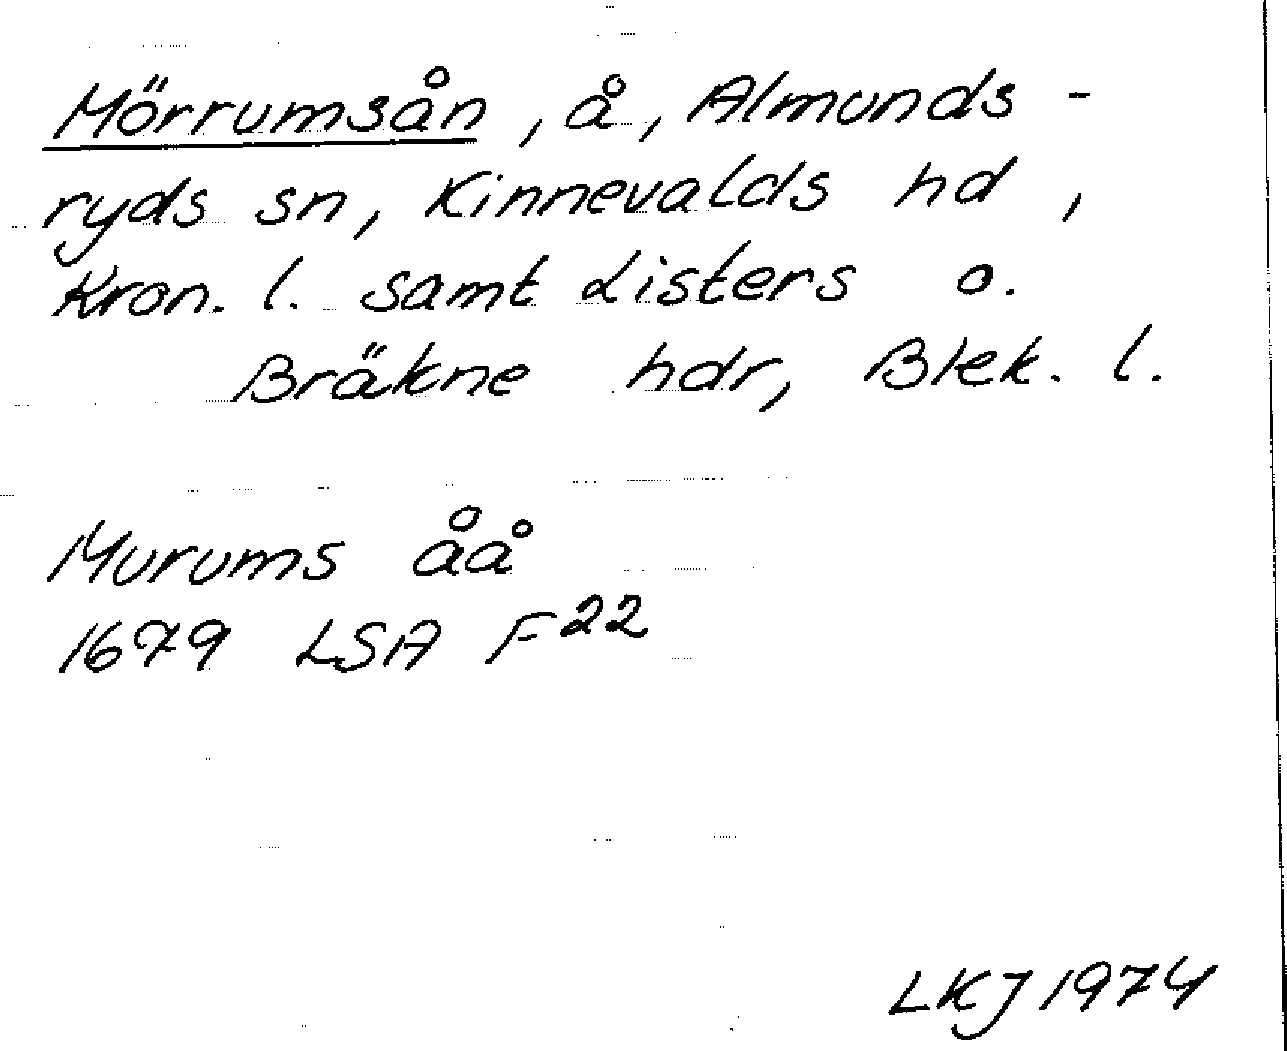 Mörrumsån, å, Almunds-
ryds sn, Kinnevalds hd,
Kron. l. samt Listers o.
Bräkne hdr, Blek. l.
Murums åå
1679 LSA F22
LKJ 1974